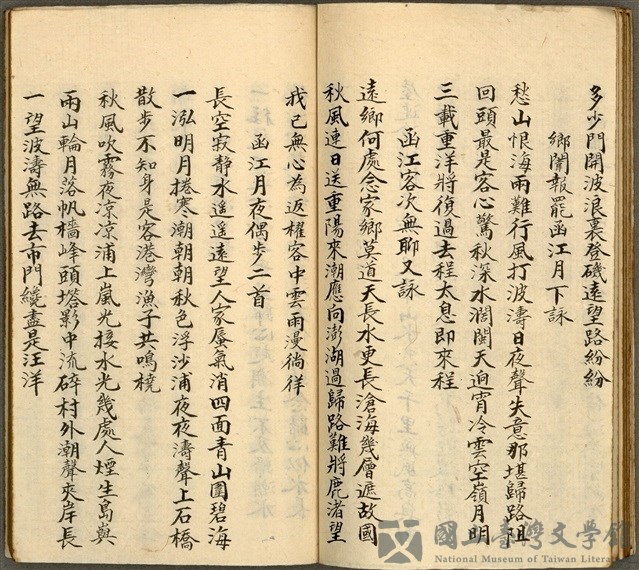 多少門開波浪裏登磯遠望路紛紛
鄉闈報罷函江月下詠
愁山恨海雨難行風打波濤日夜聲失意那堪歸路阻
回頭最是客心驚秋深水濶關天逈宵冷雲空嶺月明
三載重洋將復過去程太息即來程
函江客次無聊又詠
遠鄉何處念家鄉莫道天長水更長滄海幾層遮故國
秋風連日送重陽來潮應向澎湖過歸路難將鹿渚望
我已無心為返櫂客中雲雨漫徜徉
函江月夜偶步二首
長空寂静水遥遥遠望人家蜃氣消四面青山圍碧海
一泓明月捲寒潮朝朝秋色浮沙浦夜夜濤聲上石橋
散步不知身是客港灣漁子共鳴橈
秋風吹霧夜凉凉浦上嵐光接水光幾處人煙生島嶼
兩山輪月落帆檣峰頭塔影中流碎村外潮聲夾岸長
一望波濤無路去市門纔盡是汪洋
國立臺灣文學館
National Museum of Taiwan Literature